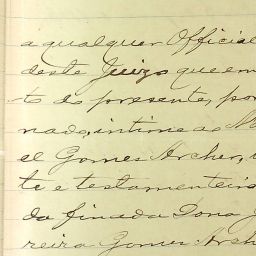 a qualquer Official
deste Juizo que em
to do presente, por
nado, intime ao M
el Gomes Archer, 
te e testamenteir
da finada Dona J
reira Gomes Arch